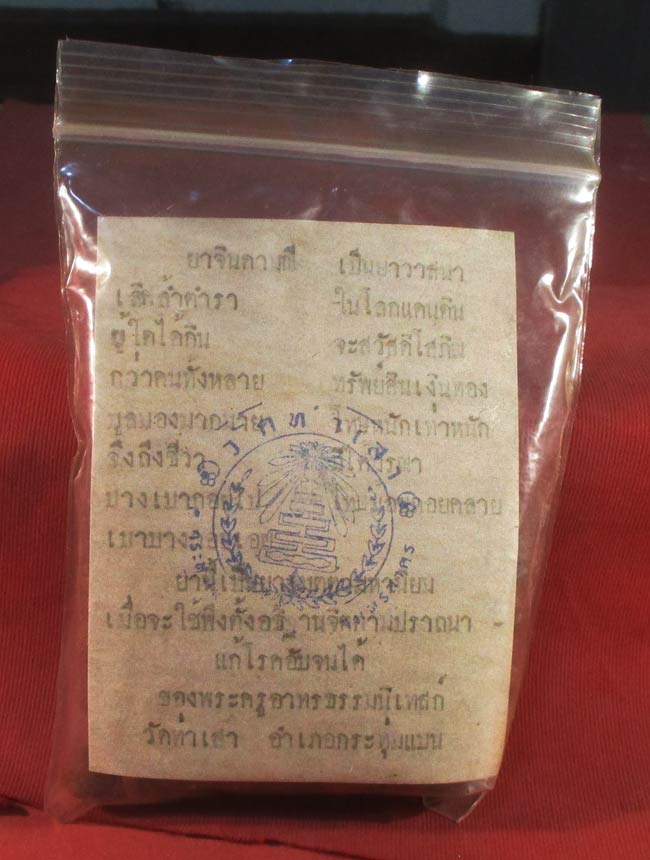 ยาจินดามณี เป็นยาวาสนา
เลิศล้ำตำรา ในโลกแดนดิน
ผู้ใดได้กิน จะสวัสดิโสภิณ
กว่าคนทั้งหลาย ทรัพย์สินเงินทอง
มูลมองมากมาย โทษหนักเท่าหนัก
จึงถึงชีวา
บางเบาถอยไป
เบาบาง
วัดท่าเสา
ยานี้เป็นยาเมตตามหานิยม
เมื่อจะใช้พึงตั้งอธิษฐานจิตตามปรารถนา
แก้โรคอับจนได้
ของพระครูอาทรธรรมนิเทสก์
วัดท่าเสา อำเภอกระทุ่มแบน